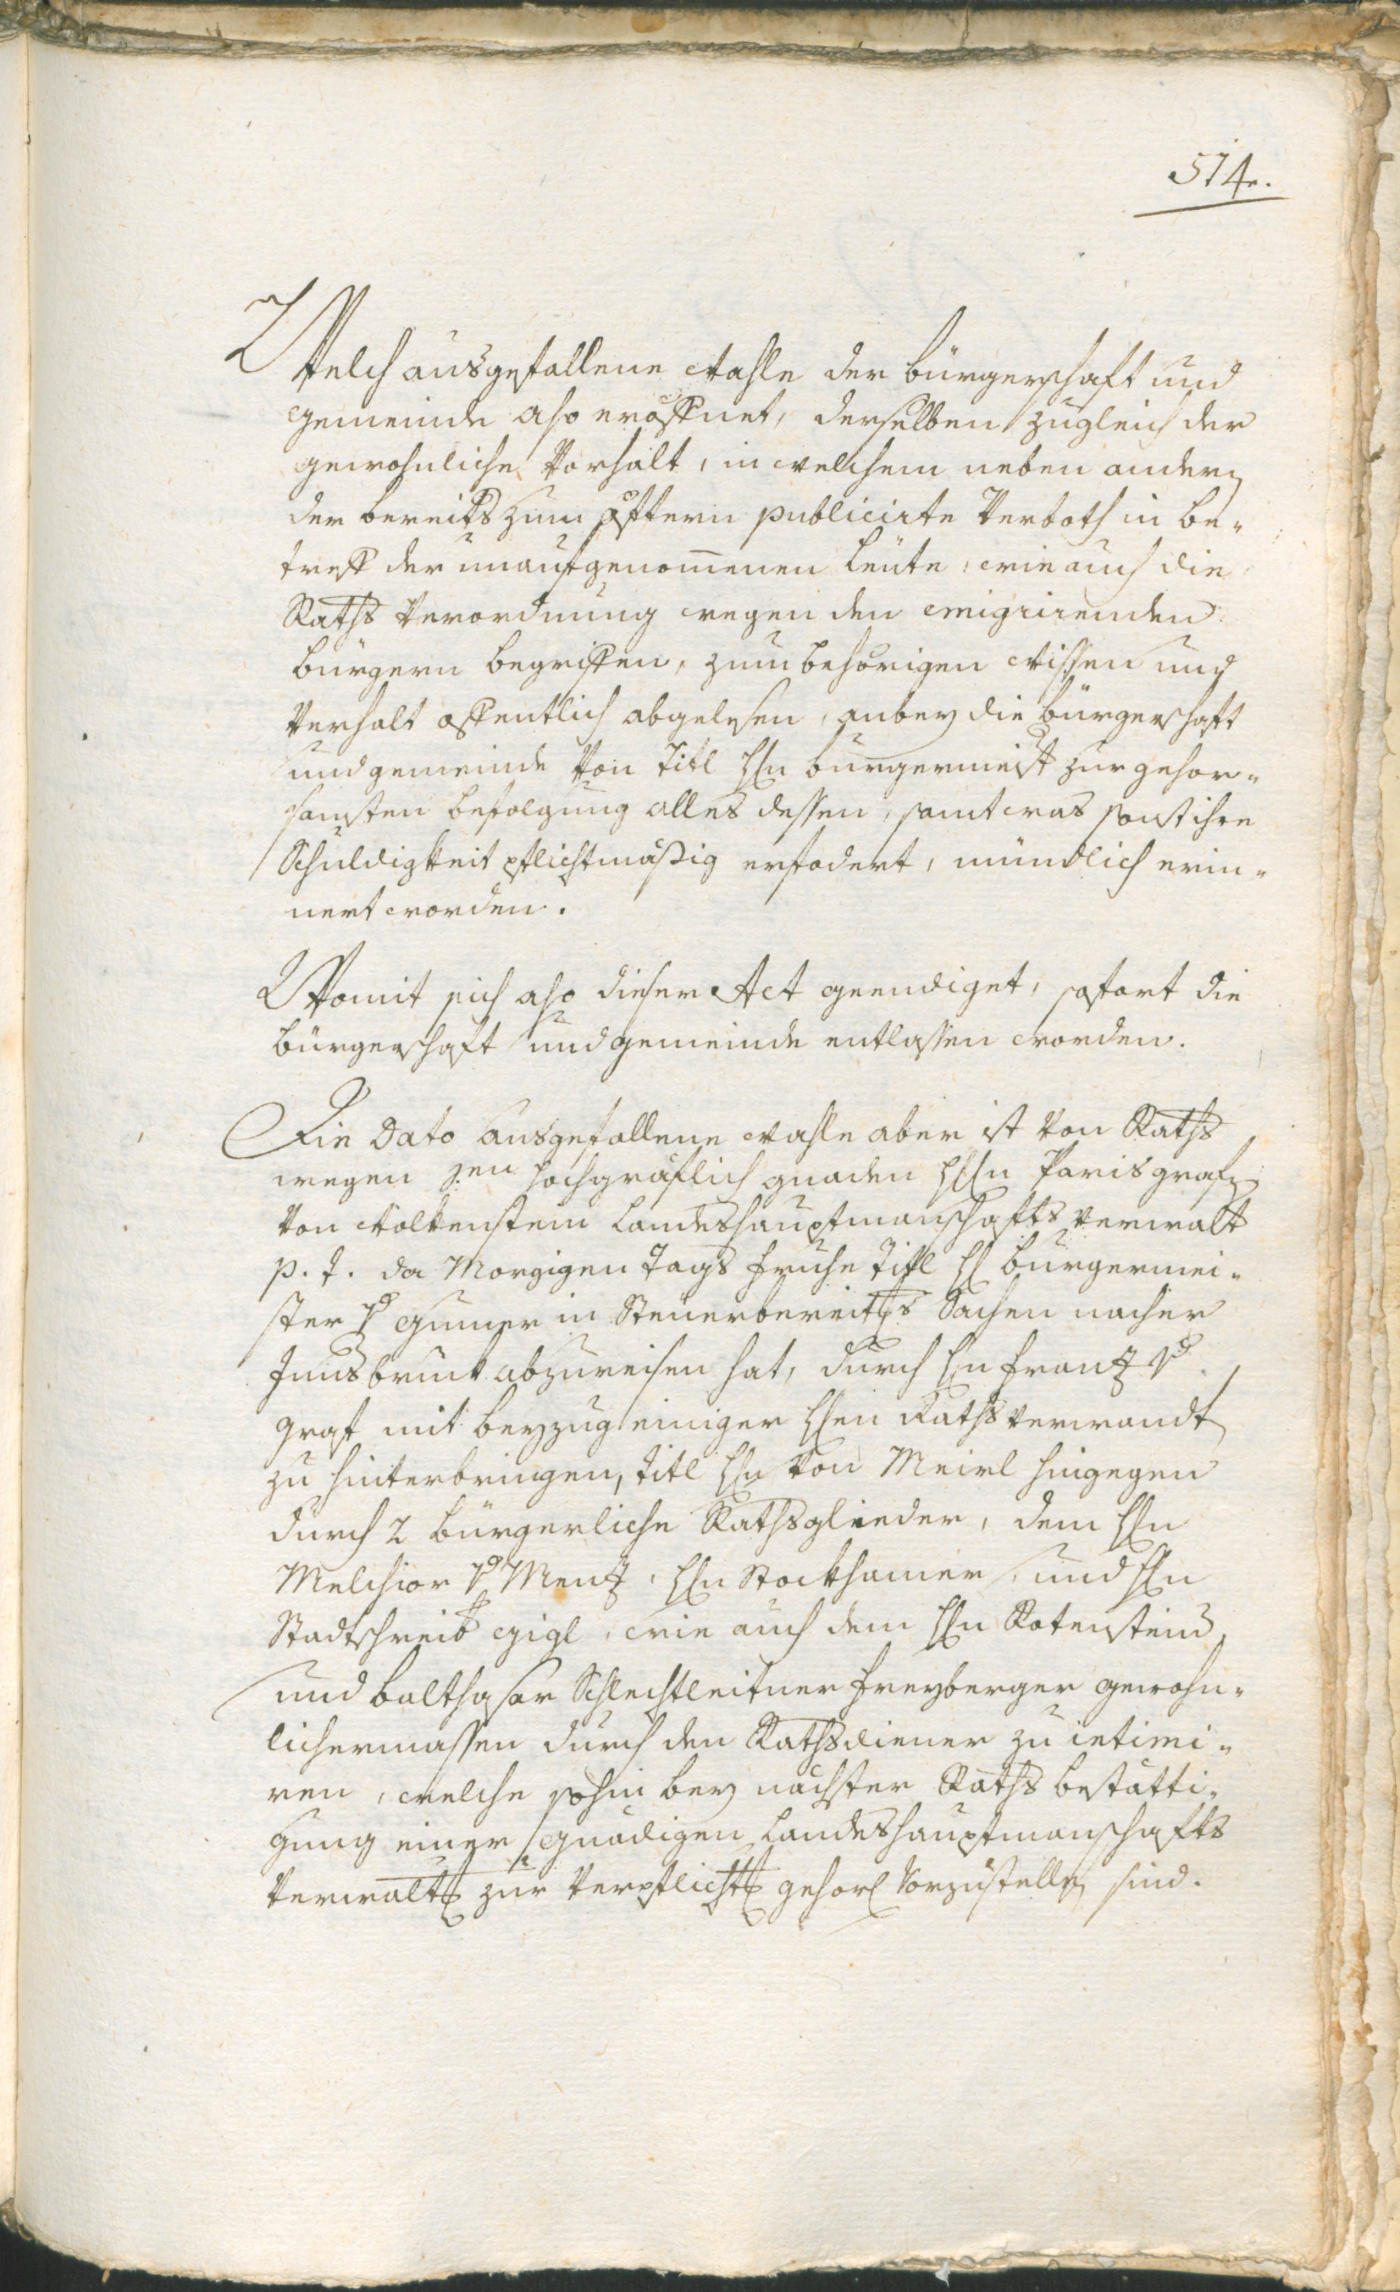 574.
Welch ausgefallene Wahle der bürgerschaft und
gemeinde also eröffnet, derselben zugleich der
gewohnliche Vorhalt, in welchem neben andern
der bereits zum öftern publicirte Verboth in be-
treff der unaufgenom̅enen leüte, wie auch die
Raths Verordnung wegen den emigrirenden
bürgern begriffen, zum behörigen Wissen und
Verhalt öffentlich abgelesen, anbey die bürgerschaft
und gemeinde Von Titl Hn burgermeist zur gehor-
samsten befolgung alles dessen, samt was sonst ihre
Schuldigkeit pflichtmäßig erfodert, mündlich erin-
nert worden.
Womit sich also dieser Act geendiget, sofort die
bürgerschaft und gemeinde entlassen worden.
Die Dato ausgefallene Wahle aber ist Von Raths
wegen hochgräflich gnaden Hn Paris grafen
Von Wolkenstein Landeshauptmanschafts Verwalt
p. t. da Morgigen Tags fruhe Titl H burgermei-
ster v gumer in Steuerbereit̅s Sachen nacher
Innsbruk abzureisen hat, durch Hn frantz v
graf mit beyzug einiger Hen Raths verwandt
zu hinterbringen, titl Hn Von Meirl hingegen
durch 2 bürgerliche Rathsglieder, dem Hn
Melchior v Mentz, Hn Stockhamer, und Hn
Stadtschreib gigl, wie auch dem Hn Rotenstein
und balthasar Schlechtleitner freyberger gewohn-
lichermassen durch den Rathsdiener zu intimi-
ren, welche sohin bey nachster Raths bestätti-
gung einer gnädigen Landeshauptmanschafts
Verwalt zur Verpflicht gehors Vorzustellen sind.